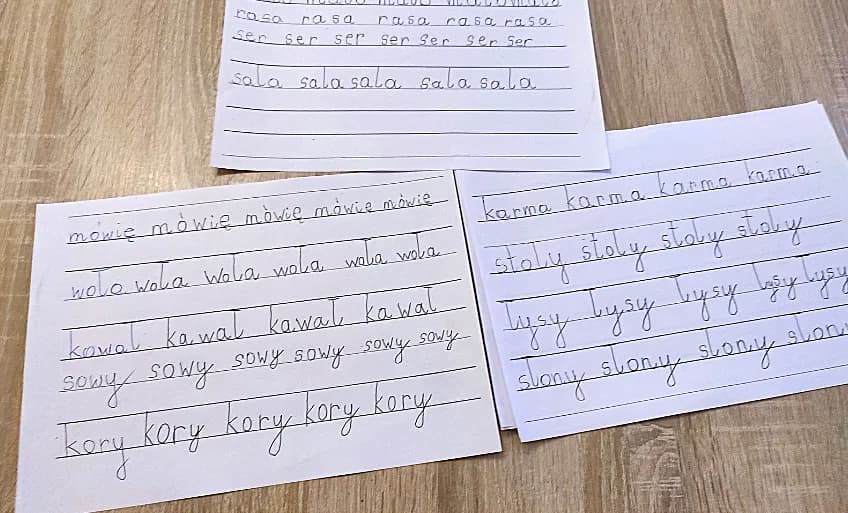 rasa rasa rasa rasa rasa
ser ser ser ser ser ser ser
sala sala sala sala sala
mówię mówię mówię mówię mówię
wola wola wola wola wola wola
kowal kawał kawał kawał
sowy sowy sowy sowy sowy sowy
kory kory kory kory kory
karma karma karma karma
stoły stoły stoły stoły
łysy łysy łysy łysy łysy
słony słony słony